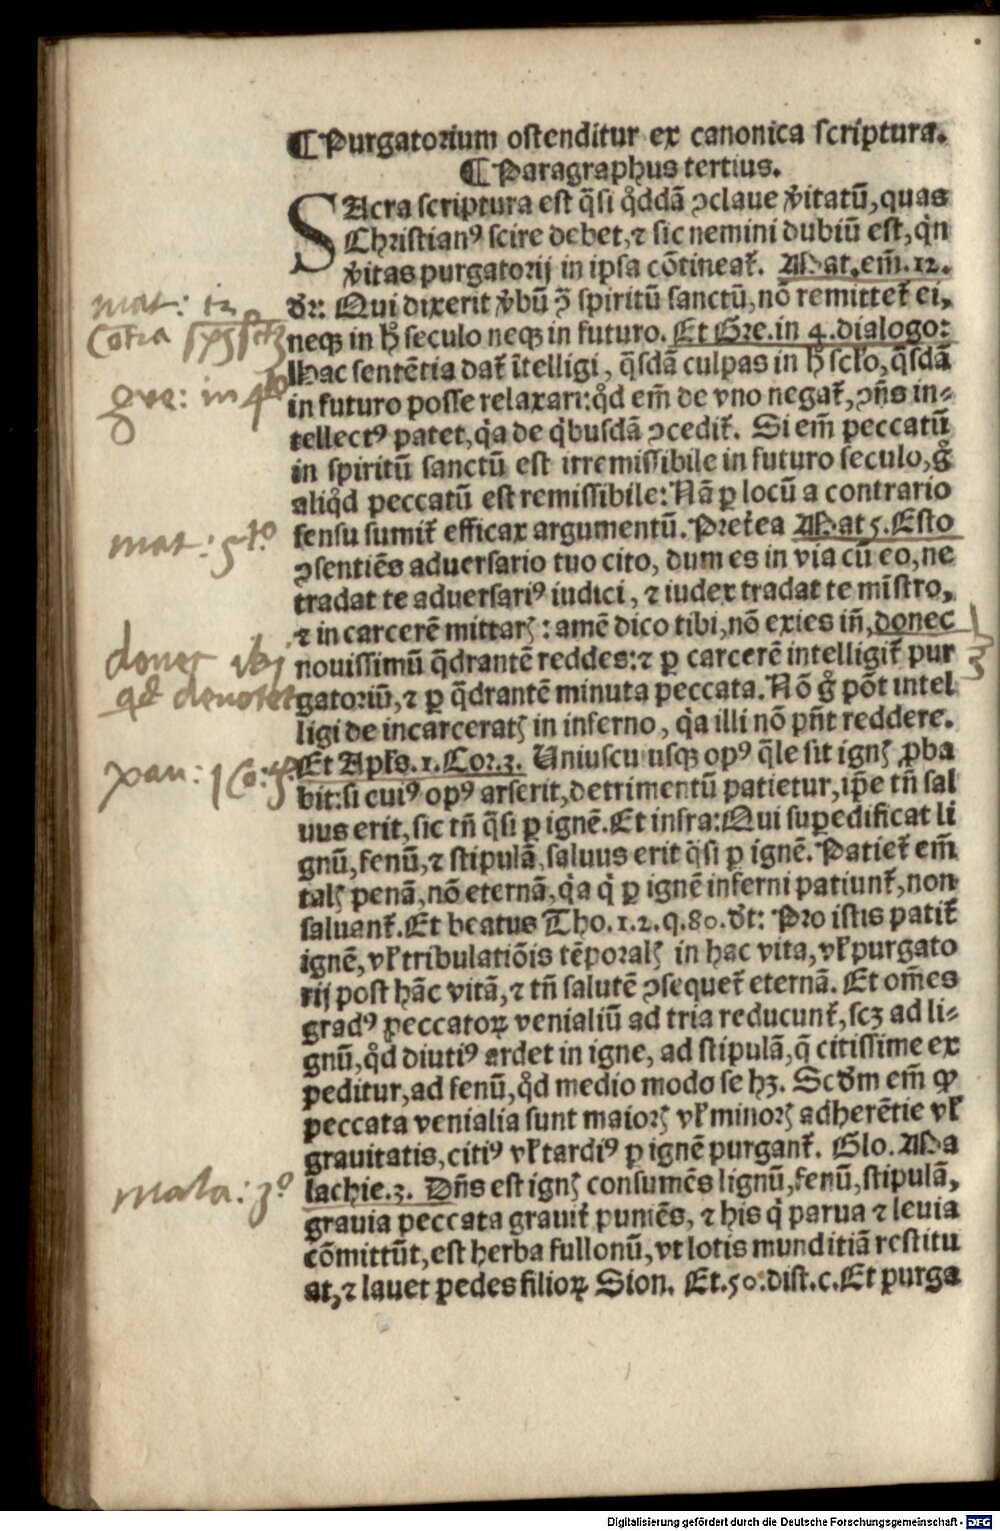 ¶Purgatorium ostenditur ex canonica scriptura.
¶Paragraphus tertius.
SAcra scriptura est q̃si q̊ddã ↄclaue ṽitatũ, quas
Christianꝰ scire debet, ⁊ sic nemini dubiũ est, qͥn
ṽitas purgatorij in ipsa cõtineat᷑. Mat. em̃. 12.
dr̃: Qui dixerit ṽbũ ↄ̃ spiritũ sanctũ, nõ remittet᷑ ei,
neqꝫ in h̊ seculo neqꝫ in futuro. Et Gre. in 4. dialogo:
Hac sentẽtia dat᷑ ĩtelligi, q̃sdã culpas in h̊ scľo, q̃sdã
in futuro posse relaxari: q̊d em̃ de vno negat᷑, ↄñs in-
tellectꝰ patet, qͥa de qͥbusdã ↄcedit᷑. Si em̃ peccatũ
in spiritũ sanctũ est irremissibile in futuro seculo, g̊
aliqͥd peccatũ est remissibile: Nã ꝑ locũ a contrario
sensu sumit᷑ efficax argumentũ. Pret̃ea Mat 5. Esto
ↄsentiẽs aduersario tuo cito, dum es in via cũ eo, ne
tradat te aduersariꝰ iudici, ⁊ iudex tradat te mĩstro,
⁊ in carcerẽ mittarꝭ: amẽ dico tibi, nõ exies iñ, donec
nouissimũ q̃drantẽ reddes: ⁊ ꝑ carcerẽ intelligit᷑ pur
gatoriũ, ⁊ ꝑ q̃drantẽ minuta peccata. Nõ g̊ põt intel
ligi de incarceratꝭ in inferno, qͥa illi nõ pñt reddere.
Et Apľs. 1. Cor. 3. Uniuscuiusqꝫ opꝰ q̃le sit ignꝭ ꝓba
bit: si cuiꝰ opꝰ arserit, detrimentũ patietur, ip̃e tñ sal
uus erit, sic tñ q̃si ꝑ ignẽ. Et infra: Qui suꝑedificat li
gnũ, fenũ, ⁊ stipulã, saluus erit q̃si ꝑ ignẽ. Patiet᷑ em̃
talꝭ penã, nõ eternã, qͥa qͥ ꝑ ignẽ inferni patiunt᷑, non
saluant᷑. Et beatus Tho. 1. 2. q. 80. dt̃: Pro istis patit᷑
ignẽ, vľ tribulatiõis tẽporalꝭ in hac vita, vľ purgato
rij post hãc vitã, ⁊ tñ salutẽ ↄsequet᷑ eternã. Et om̃es
gradꝰ peccatoꝝ venialiũ ad tria reducunt᷑, scꝫ ad li-
gnũ, q̊d diutiꝰ ardet in igne, ad stipulã, q̃ citissime ex
peditur, ad fenũ, q̊d medio modo se hꝫ. Scd̃m em̃ ꝙ
peccata venialia sunt maiorꝭ vľ minorꝭ adherẽtie vľ
grauitatis, citiꝰ vľ tardiꝰ ꝑ ignẽ purgant᷑. Glo. Ma
lachie. 3. Dñs est ignꝭ consumẽs lignũ, fenũ, stipulã,
grauia peccata grauit᷑ puniẽs, ⁊ his qͥ parua ⁊ leuia
cõmittũt, est herba fullonũ, vt lotis munditiã restitu
at, ⁊ lauet pedes filioꝝ Sion. Et. 50. dist. c. Et purga
mat: 12
Cõtra
gre: in 4to
mat: 5to
donec ibi
qd denotet
pau: 1 Co: 3
mala: 3o
Digitalisierung gefördert durch die Deutsche Forschungsgemeinschaft - DFG